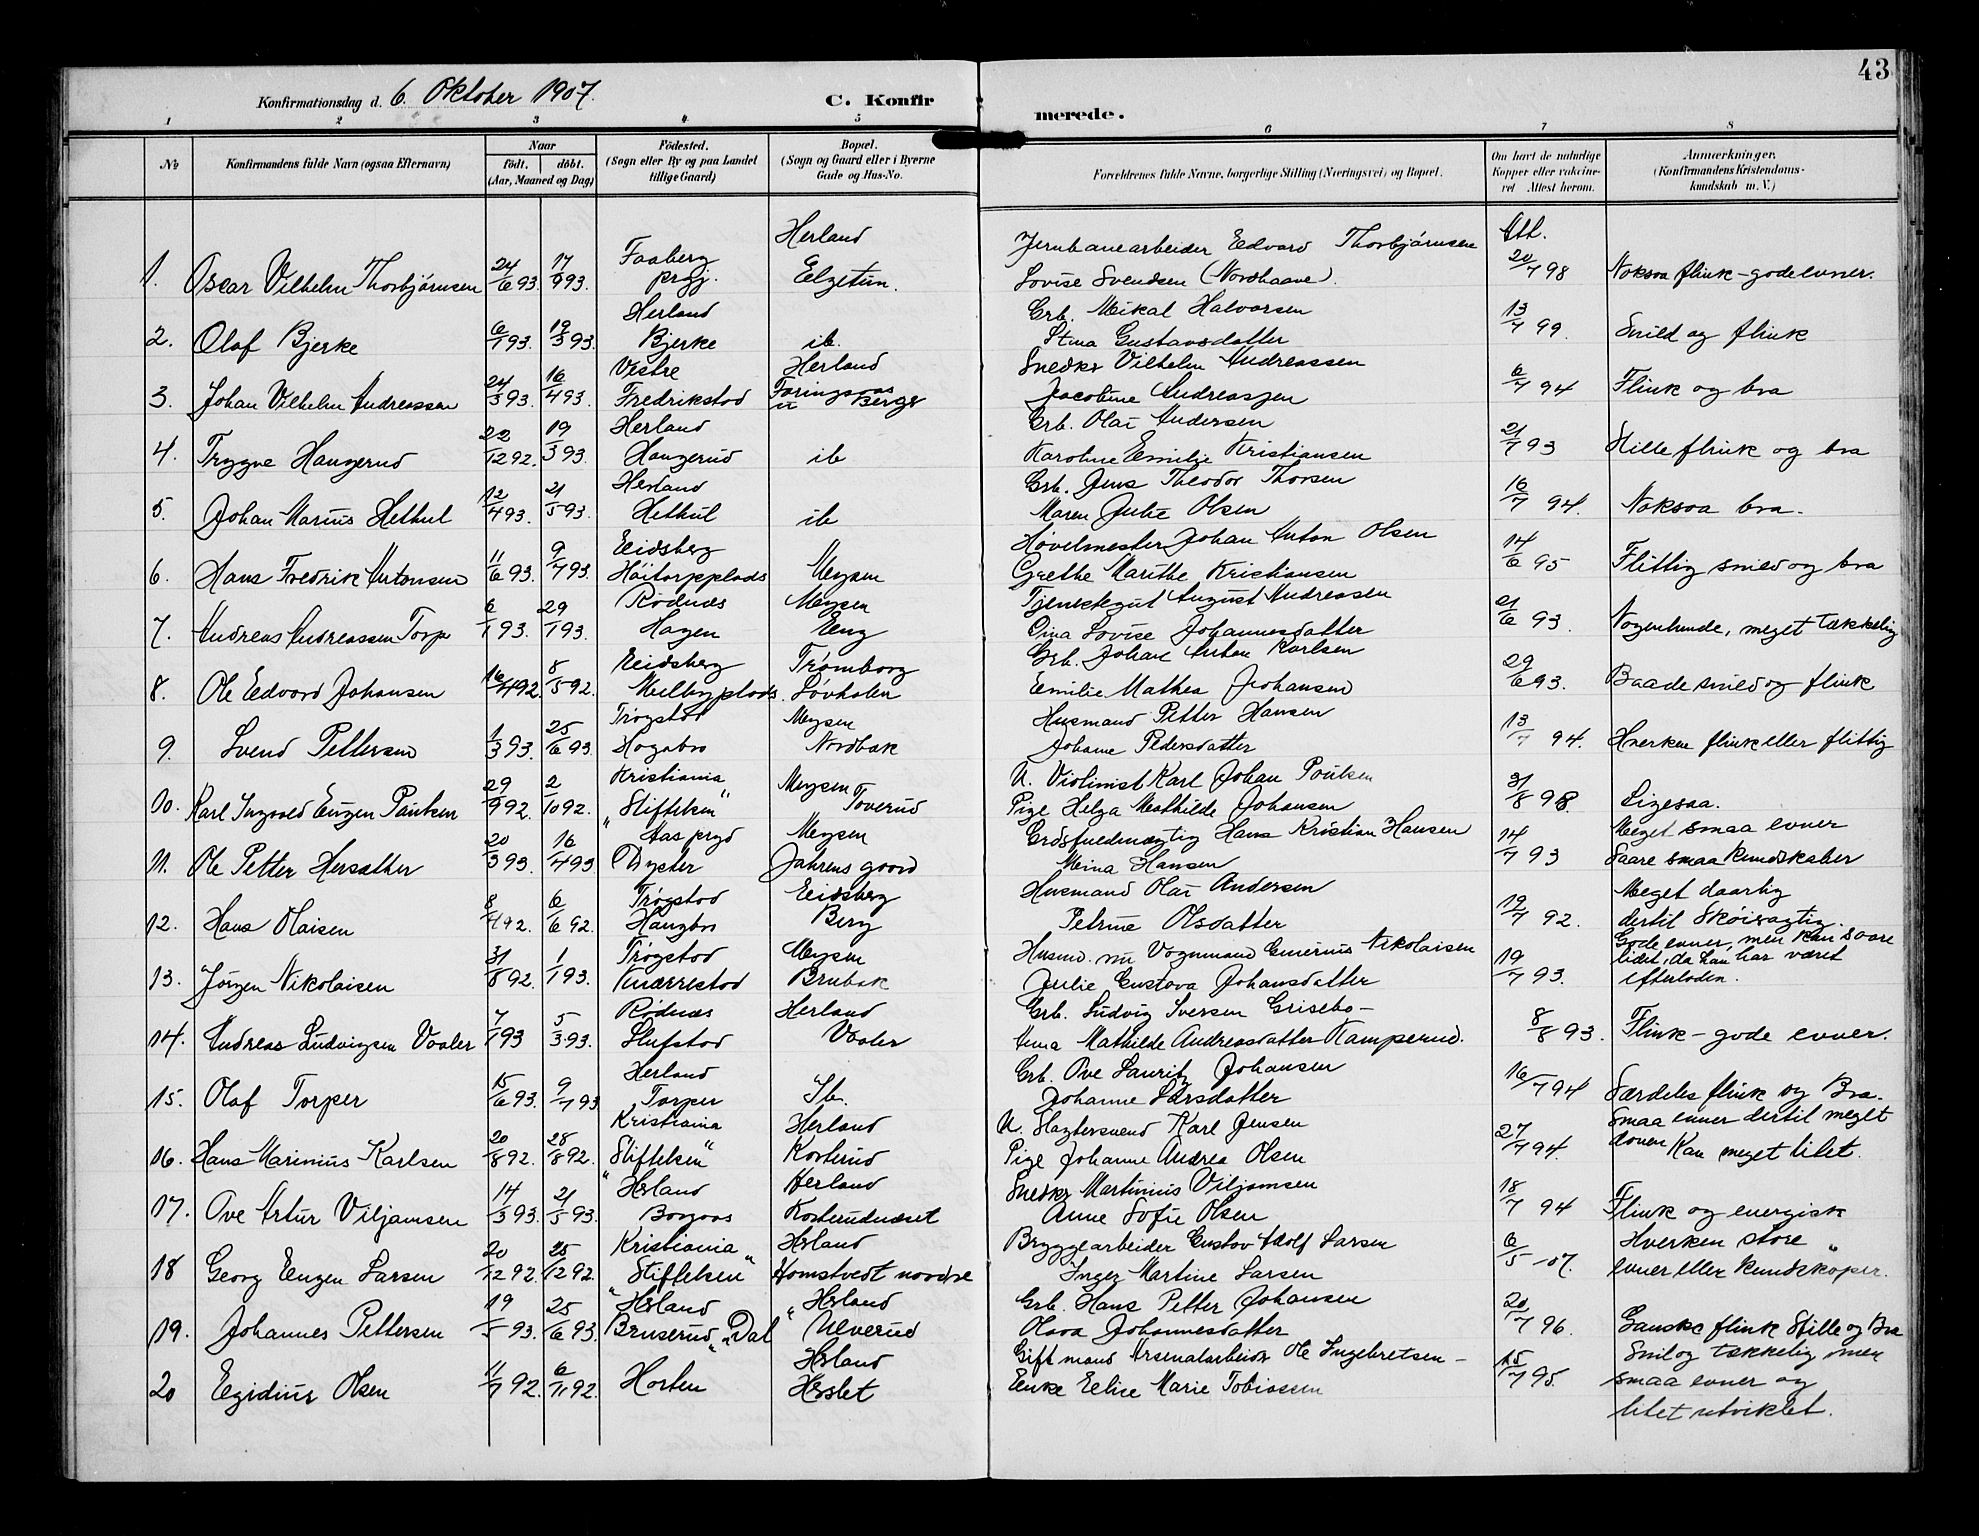 43
Konfirmationsdag d. 6. Oktober 1907.
C. Konfirmerede.
1 2 3 4 5 6 7 8
No
Konfirmandens fulde Navn (ogsaa Efternavn)
Naar
födt. döbt.
(Aar, Maaned og Dag)
Födested.
(Sogn eller By og paa Landet
tillige Gaard)
Bopæl.
(Sogn og Gaard eller i Byerne
Gade og Hus-No.
Forældrenes fulde Navne, borgerlige Stilling (Næringsvei) og Bopæl.
Om havt de naturlige
Kopper eller vaccine-
ret Attest herom.
Anmærkninger.
(Konfirmandens Kristendoms-
kundskab m. V.)
Herland Jernbanearbeider Edvard Thorbjørnsen Att.
1. Oscar Vilhelm Thorbjørnsen 24/6 93. 17/9 93. Faaberg prgj. Elgetun. Lovise Svendsen (Nordhaave). 20/7 98 Noksaa flink - gode evner.
Herland Grb. Mikal Halvorsen
2. Olaf Bjerke 6/1 93. 19/3 93. Bjerke ib. Stina Gustavsdatter 13/7 99. Snild og flink
Vestre Herland Snedker Vilhelm Andreassen
3. Johan Vilhelm Andreassen 24/3 93. 16/4 93. Fredrikstad Jacobine Andreasen 6/7 94 Flink og bra
Herland Grb. Olai Andersen
4. Trygve Haugerud 22/12 92. 19/3 93. Haugerud ib Karoline Emilie Kristiansen 21/7 93 Stille flink og bra
Herland Grb. Jens Theodor Thorsen
5. Johan Marius Hetkul 12/4 93. 21/5 93. Hetkul ib Maren Julie Olsen 16/7 94. Noksaa bra.
Eidsberg Høvelmester Johan Anton Olsen
6. Hans Fredrik Antonsen 11/6 93. 9/7 93. Høitorpplads Mysen Grethe Marthe Kristiansen 14/6 95 Flittig snild og bra
Rødnæs Mysen Tjenestegut August Andreasen
7. Andreas Andreassen Torp 6/1 93. 29/1 93. Hagen Eng Dina Lovise Johannesdatter 21/6 93. Nogenlunde, meget tækkelig
Eidsberg Trømborg Grb. Johan Anton Karlsen
8. Ole Edvard Johansen 16/4 92. 8/5 92. Melbyplads Løvholen Emilie Mathea Johansen 29/6 93. Baade snild og flink
Trøgstad Mysen Husmand Petter Hansen
9. Svend Pettersen 1/3 93. 25/6 93. Hagabro Nordbak Johane Pedersdatter 13/7 94. Hverken flink eller flittig
Kristiania Mysen U. Violinist Karl Johan Poulsen
10. Karl Ingvald Eugen Paulsen 29/9 92. 2/10 92. "Stiftelsen" Toverud Pige Helga Mathilde Johansen 31/8 98. Ligesaa.
Aas prgd Mysen Grdsfuldmægtig Hans Kristian Hansen Meget smaa evner
11. Ole Petter Hersæther 20/3 93. 16/4 93 Dyster Jahrens gaard Mina Hansen 14/7 93 Saare smaa kundskaber
Trøgstad Eidsberg Husmand Olai Andersen Meget daarlig
12. Hans Olaisen 8/4 92. 6/6 92. Haugbro Berg Petrine Olsdatter 19/7 92. dertil Skøieragtig.
Trøgstad Mysen Husmd. nu Vognmand Nikolaisen Gode evner, men kan saare
lidet, da han har været
13. Jørgen Nikolaisen 31/8 92. 1/1 93. Knærrestad Brubak Julie Gustava Johansdatter 19/7 93. efterladen.
Rødnæs Herland Grb. Ludvig Iversen Grisebo-
14. Andreas Ludvigsen Vaaler 7/1 93 5/3 93. Slufstad Vaaler Anna Mathilde Andreasdatter Kamperud. 8/8 93. Flink - gode evner.
Herland Grb. Ove Lauritz Johansen
15. Olaf Torper 15/6 93. 9/7 93 Torper Ib. Johanne Larsdatter 16/7 94 Særdeles flink og Bra.
Kristiania Herland U. Slagtersvend Karl Jensen Smaa evner dertil meget
16. Hans Marinius Karlsen 20/8 92. 28/8 92. "Stiftelsen" Kosterud Pige Johanne Andrea Olsen 27/7 94. doven Kan meget litet.
Herland Herland Snedker Martinius Viljamsen
17. Ove Artur Viljamsen 14/3 93. 21/5 93. Borgaas Kosterudsæset Anne Sofie Olsen 18/7 94 Flink og energisk
Kristiania Herland Bryggearbeider Gustav Adolf Larsen Hverken store
18 Georg Eugen Larsen 20/12 92. 25/12 92. "Stiftelsen" Homstvedt nordre Inger Martine Larsen 6/5 -07. evner eller kundskaper.
Herland Herland Grb. Hans Petter Johansen
19. Johannes Pettersen 19/5 93. 25/6 93. Bruserud "Dal" Ulverud Olava Johannesdatter 20/7 96. Ganske flink Stille og Bra
Herland Gift mand Arsenalarbeider Ole Ingebretsen - Snil og tækkelig men
20 Egidius Olsen 11/7 92. 6/11 92. Horten Herslet Enke Elise Marie Tobiassen 15/7 95. smaa evner og
litet utviklet.